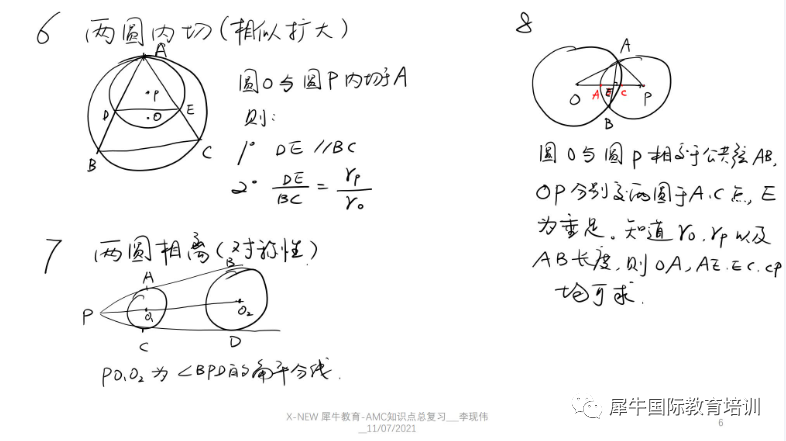 6 两圆内切(相似扩大)
A
P
D
O
E
B
C
圆O与圆P内切于A
则:
1° DE // BC
2° DE/BC = rP/rO
7 两圆相离(对称性)
B
A
P
O₁
O₂
C
D
PO₁O₂为∠BPD的角平分线.
8
A
O
A
E
C
P
B
圆O与圆P相交于公共弦AB,
OP分别交两圆于A.C点,E
为垂足。知道rO.rP以及
AB长度,则OA,AE.EC.CP
均可求.
X-NEW 犀牛教育-AMC知识点总复习__李现伟
__11/07/2021
犀牛国际教育培训
6